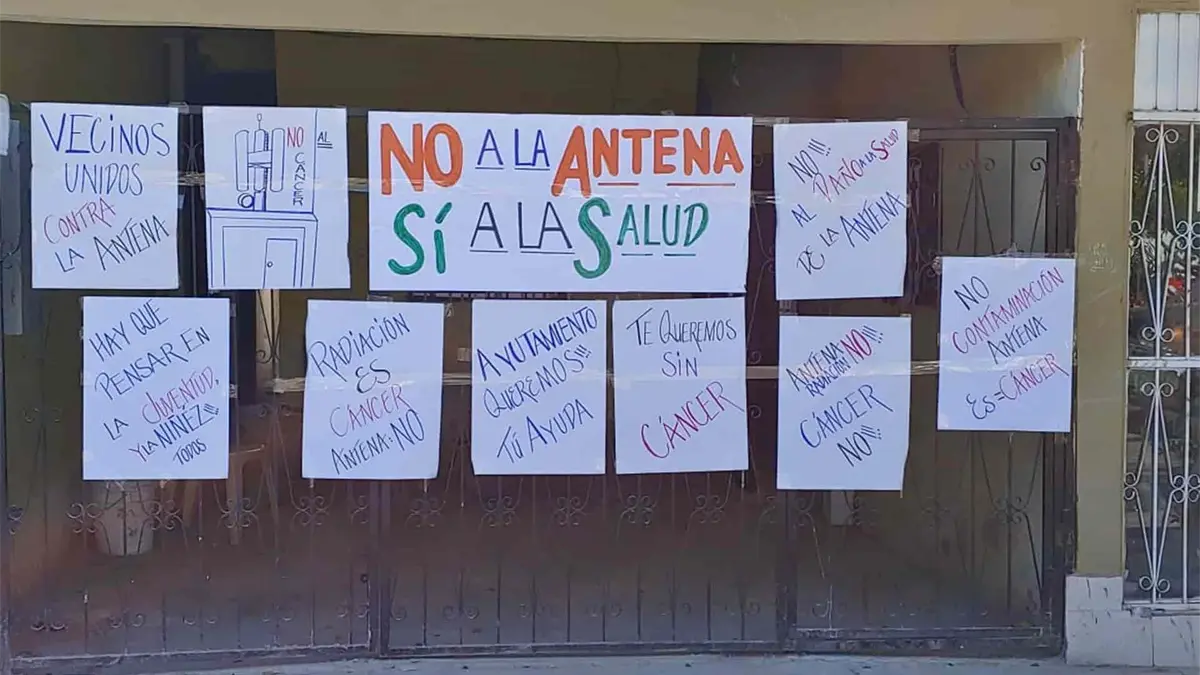 VECINOS
UNIDOS
CONTRA
LA ANTENA
NO AL
CANCER
NO A LA ANTENA
SÍ A LA SALUD
NO!!!
AL DAÑO A LA SALUD
DE LA ANTENA
HAY QUE
PENSAR EN
LA JUVENTUD,
Y LA NIÑEZ!!!
TODOS
RADIACIÓN
ES
CÁNCER
ANTENA: NO
AYUTAMIENTO
QUEREMOS!!!
TÚ AYUDA
TE QUEREMOS
SIN
CÁNCER
ANTENA-
RADIACIÓN NO!!!
CÁNCER
NO!!!
NO
CONTAMINACIÓN
ANTENA
ES=CÁNCER